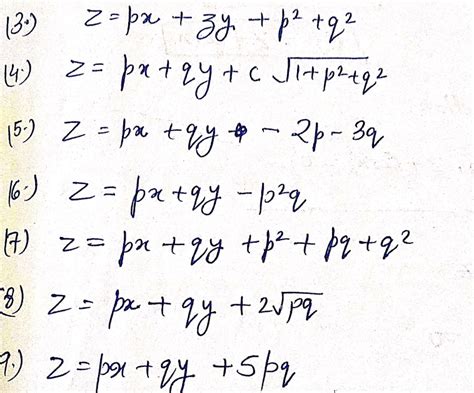 13.) z = px + zy + p² + q²
14.) z = px + qy + c √1+p²+q²
15.) z = px + qy - 2p - 3q
16.) z = px + qy - p²q
17) z = px + qy + p² + pq + q²
8) z = px + qy + 2√pq
9.) z = px + qy + 5pq